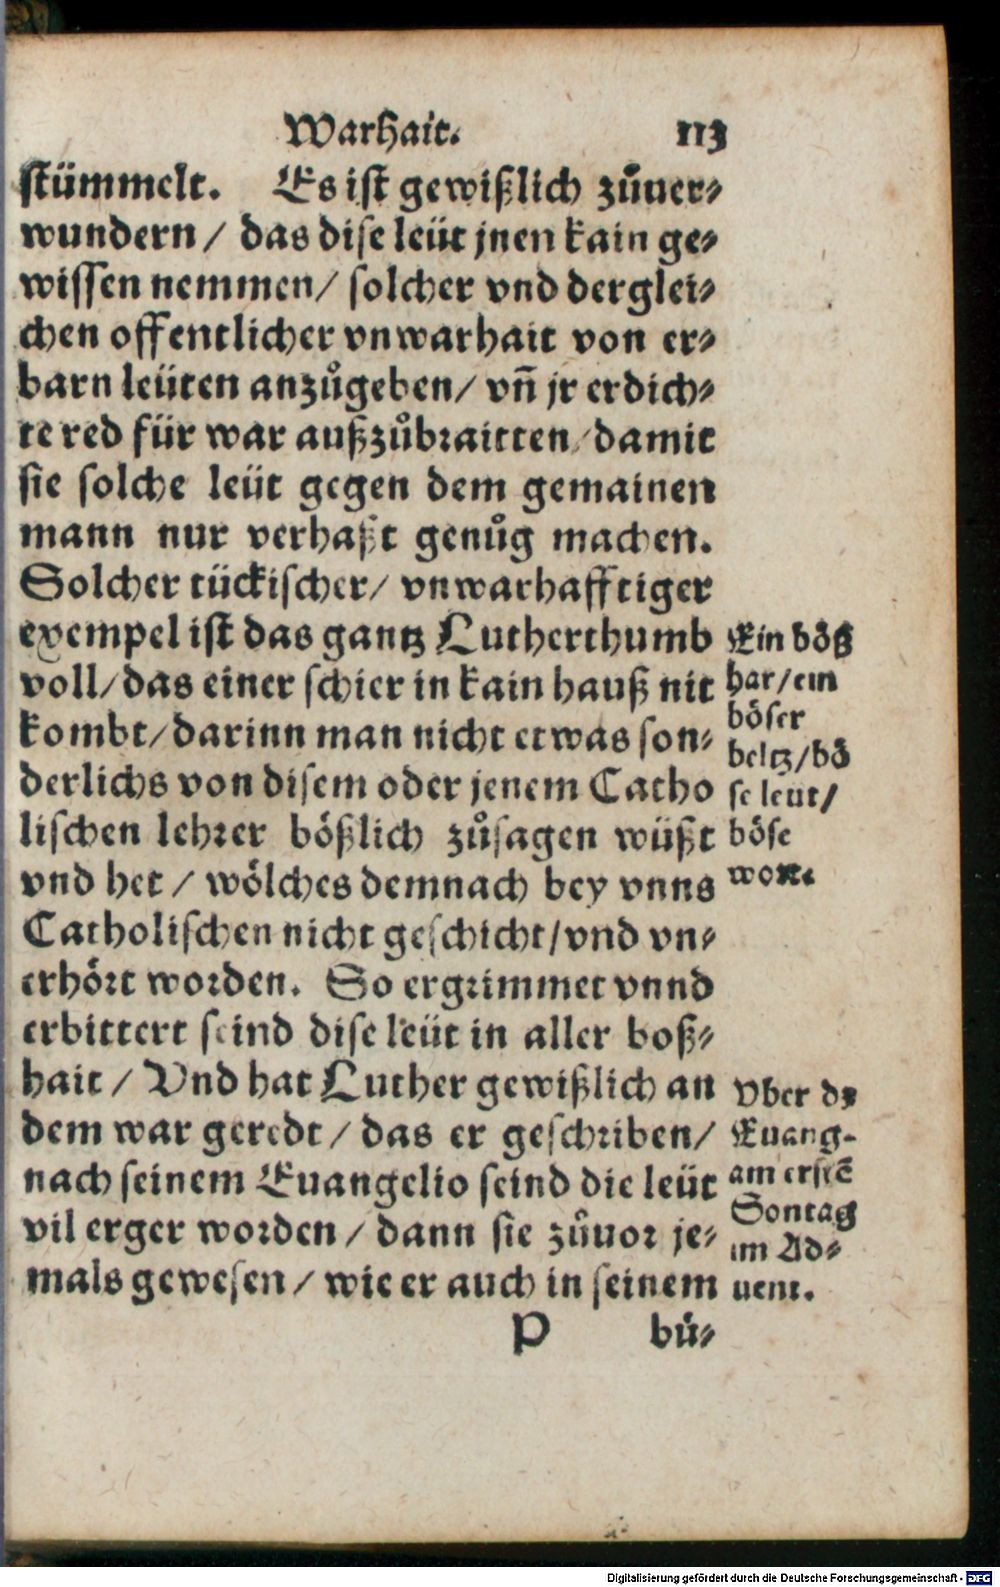 Warhait. 113
stümmelt. Es ist gewißlich zůuer⸗
wundern / das dise leüt jnen kain ge⸗
wissen nemmen / solcher vnd derglei⸗
chen offentlicher vnwarhait von er⸗
barn leüten anzůgeben / vñ jr erdich⸗
te red für war außzůbraitten / damit
sie solche leüt gegen dem gemainen
mann nur verhaßt genůg machen.
Solcher tückischer / vnwarhafftiger
exempel ist das gantz Lutherthumb
voll / das einer schier in kain hauß nit
kombt / darinn man nicht etwas son⸗
derlichs von disem oder jenem Catho
lischen lehrer bößlich zůsagen wüßt
vnd het / wölches demnach bey vnns
Catholischen nicht geschicht / vnd vn⸗
erhört worden. So ergrimmet vnnd
erbittert seind dise leüt in aller boß⸗
hait / Vnd hat Luther gewißlich an
dem war geredt / das er geschriben /
nach seinem Euangelio seind die leüt
vil erger worden / dann sie zůuor je⸗
mals gewesen / wie er auch in seinem
P bů⸗
Ein böß
har / ein
böser
beltz / bö
se leut /
böse
wort.
Vber dz
Euang-
am erstẽ
Sontag
im Ad⸗
uent.
Digitalisierung gefördert durch die Deutsche Forschungsgemeinschaft - DFG